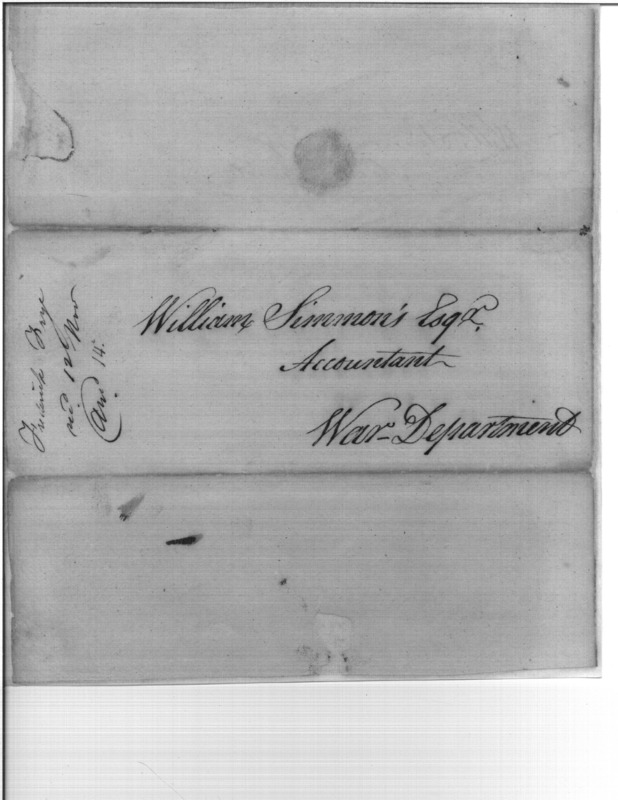 William Simmon's Esqr.
Accountant
War Department
Frederick Frye
rec'd 12th Nov
An. 14.